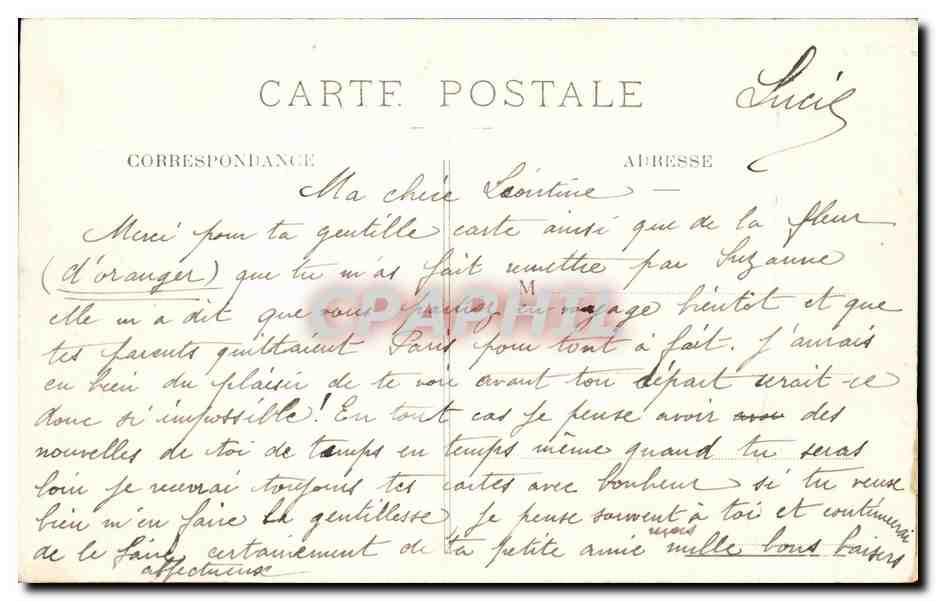 CARTE POSTALE
Lucie
CORRESPONDANCE
ADRESSE
Ma chère Léontine
Merci pour ta gentille carte ainsi que de la fleur
(d'oranger) que tu m'as fait remettre par Suzanne
M
elle m'a dit que vous partiez en voyage bientôt et que
CPAPHIL
tes parents quittaient Paris pour tout à fait. J'aurais
eu bien du plaisir de te voir avant ton départ serait-ce
donc si impossible! En tout cas je pense avoir avoir des
nouvelles de toi de temps en temps même quand tu seras
loin je recevrai toujours tes cartes avec bonheur si tu veux
bien m'en faire la gentillesse, je pense souvent à toi et continuerai
de le faire certainement de ta petite amie reçois mille bons baisers
affectueux